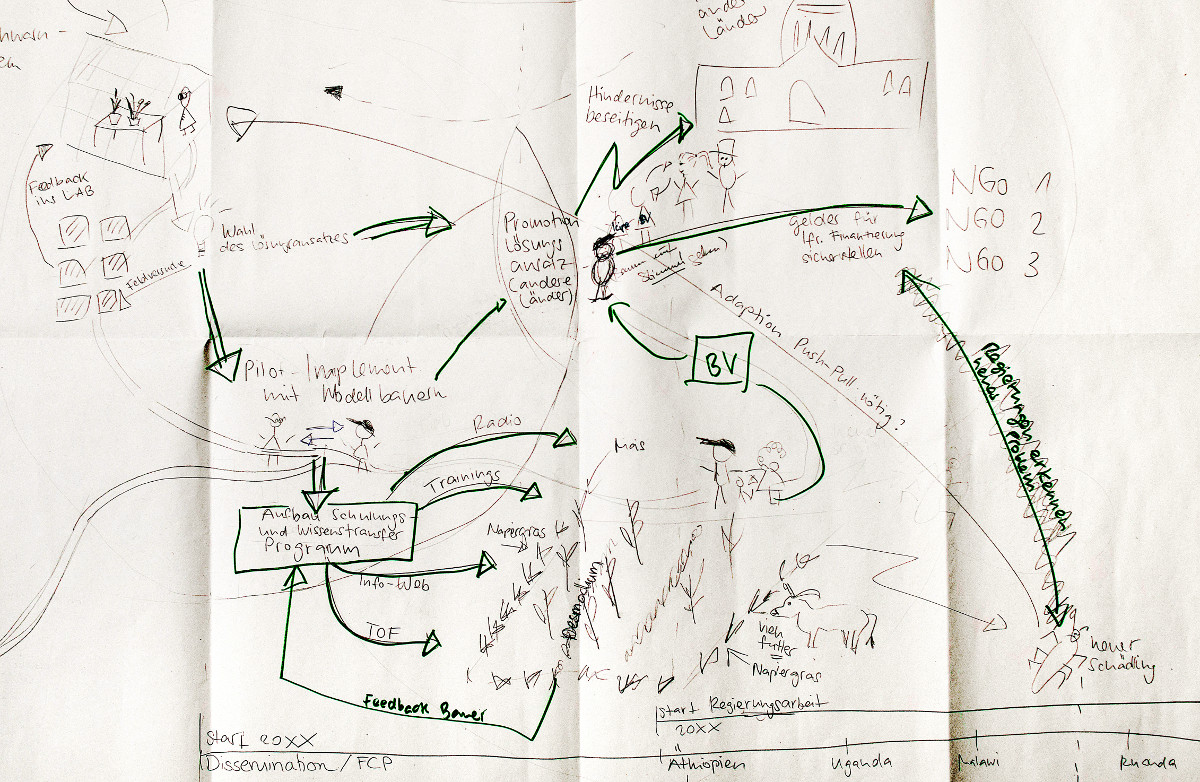 ander
Länder
Hindernisse
beseitigen
Feedback
ins LAB
Wahl
des Lösungsansatzes
Feldversuche
Promotion
Lösungs
ansatz
(andere
Länder)
Gelder für
lfr. Finanzierung
sicherstellen
NGO 1
NGO 2
NGO 3
Adaption Push-Pull nötig?
Pilot-Implement
mit Modellbauern
BV
Regierungen erkennen
neues Problem
Radio
Trainings
Mais
Aufbau Schulungs-
und Wissenstransfer
Programm
Napiergras
Info-Web
TOF
Desmodium
Vieh
futter
=
Napiergras
neuer
Schädling
Feedback Bauer
Start Regierungsarbeit
20XX
Start 20XX
Dissemination / FCP
Äthiopien
Uganda
Malawi
Ruanda